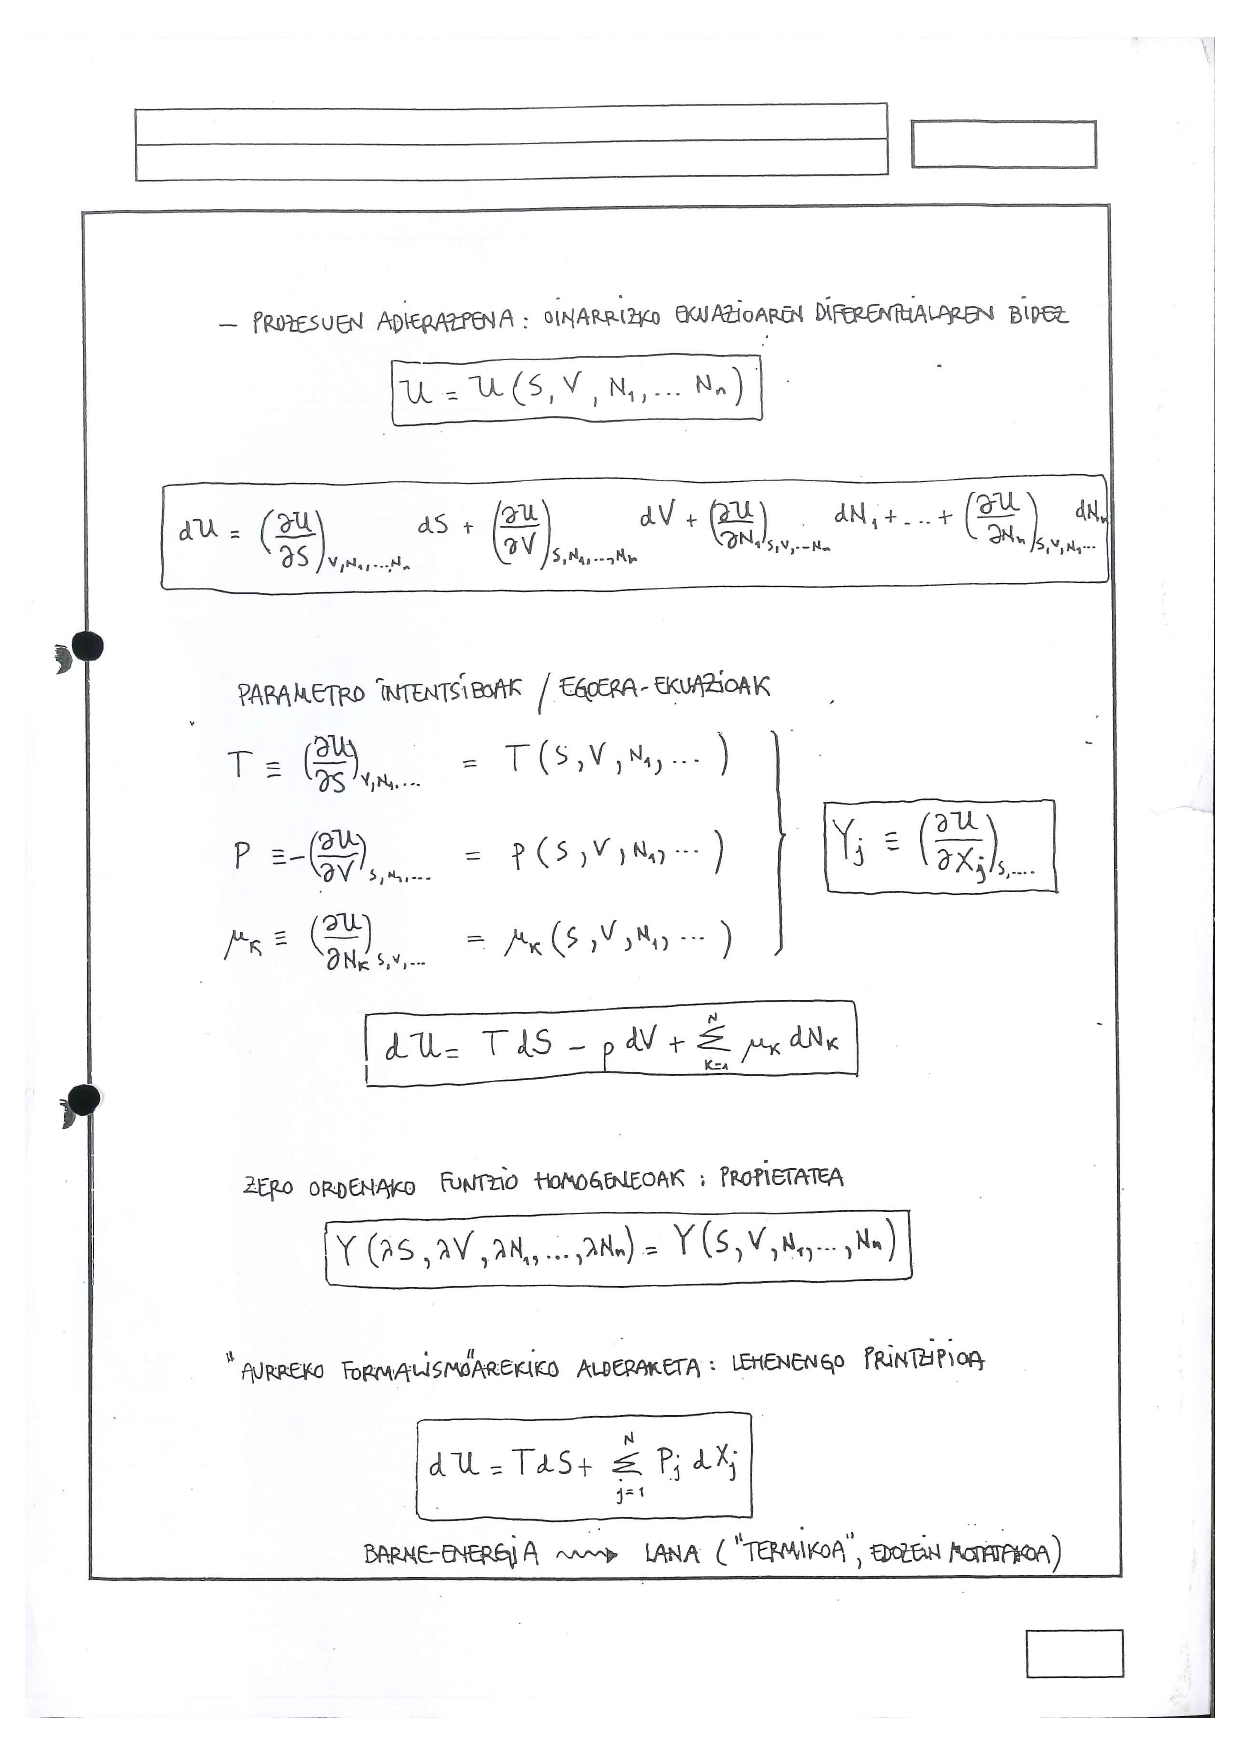 – PROZESUEN ADIERAZPENA : OINARRIZKO EKUAZIOAREN DIFERENTZIALAREN BIDEZ
U = U (S, V, N₁, ... Nₙ)
dU = (∂U/∂S)_V,N₁,...,Nₙ dS + (∂U/∂V)_S,N₁,...,Nₙ dV + (∂U/∂N₁)_S,V,...Nₙ dN₁ + ... + (∂U/∂Nₙ)_S,V,N₁... dNₙ
PARAMETRO INTENTSIBOAK / EGOERA-EKUAZIOAK
T ≡ (∂U/∂S)_V,N₁.... = T (S, V, N₁, ... )
P ≡ -(∂U/∂V)_S,N₁,... = P (S, V, N₁, ... )
Yj ≡ (∂U/∂Xj)_S,....
μ_K ≡ (∂U/∂N_K)_S,V,... = μ_K (S, V, N₁, ... )
dU = TdS – p dV + Σ_{K=1}^{N} μ_K dN_K
ZERO ORDENAKO FUNTZIO HOMOGENEOAK : PROPIETATEA
Y (λS, λV, λN₁, ..., λNₙ) = Y (S, V, N₁, ..., Nₙ)
"AURREKO FORMALISMO"AREKIKO ALDERAKETA : LEHENENGO PRINTZIPIOA
dU = TdS + Σ_{j=1}^{N} Pj dXj
BARNE-ENERGIA ⇝ LANA ("TERMIKOA", EDOZEIN MOTATAKOA)